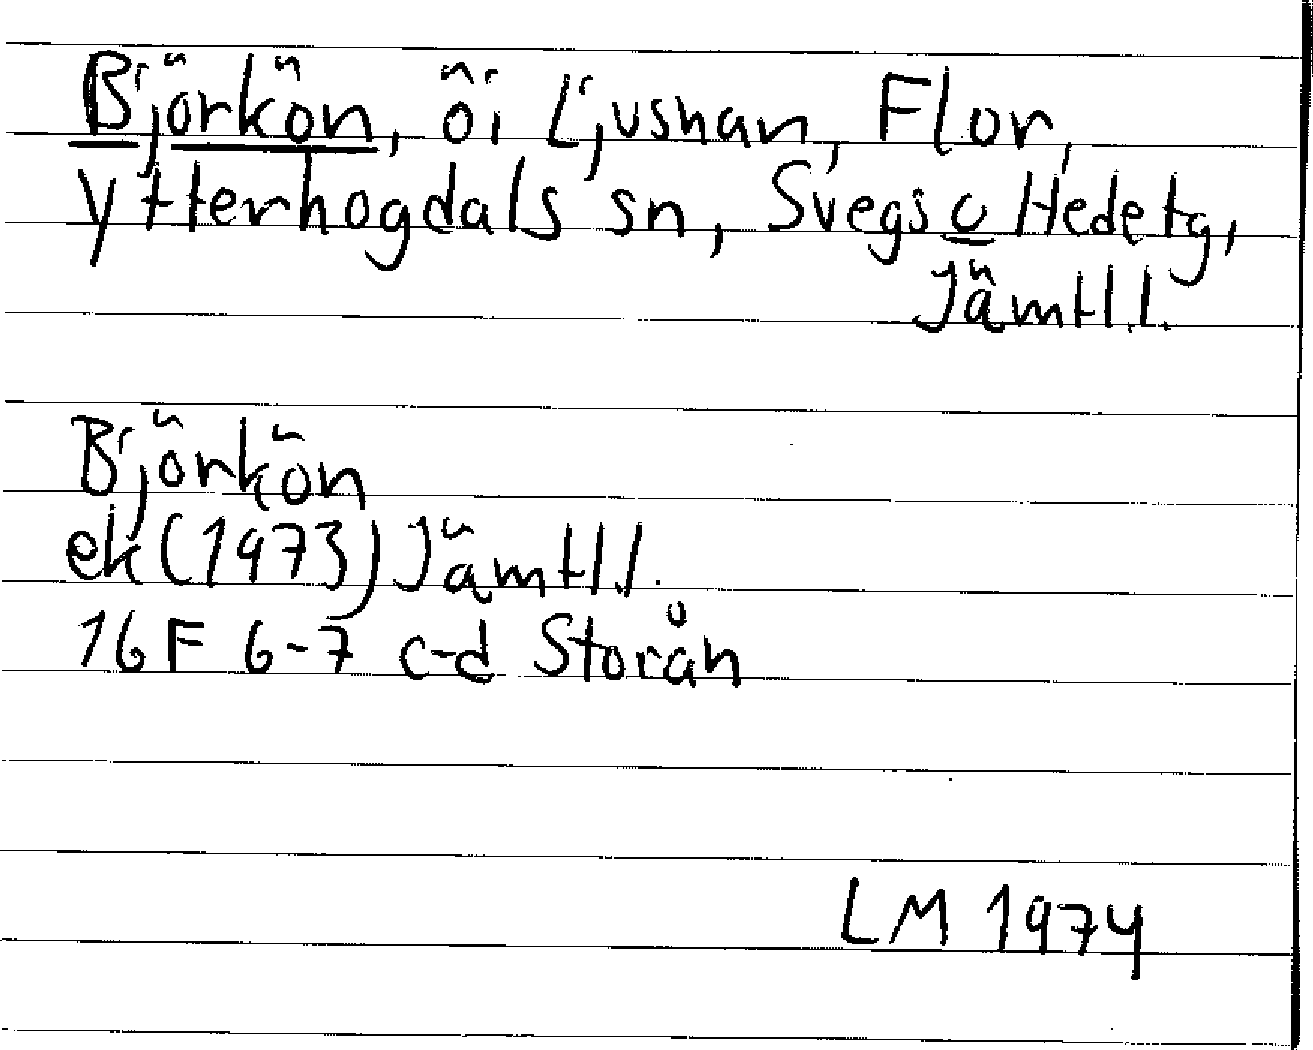 Björkön, ö i Ljusnan, Flor,
Ytterhogdals sn, Svegs o Hede tg,
Jämtl.l.
Björkön
ek (1973) Jämtl.l.
16F 6-7 c-d Storån
LM 1974